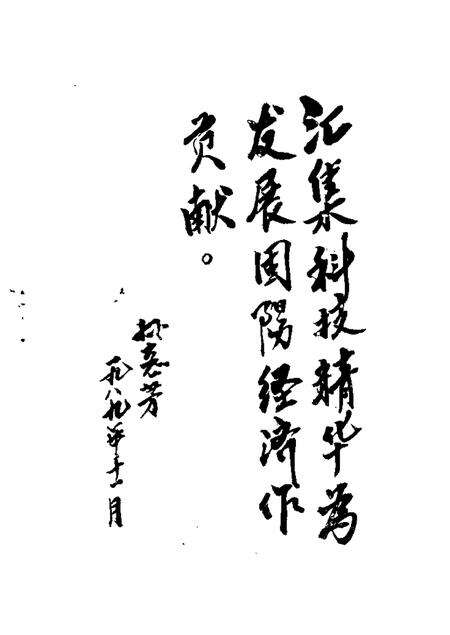 汇集科技精华為
发展固陽经济作
贡献。
志芳
一九八九年十一月